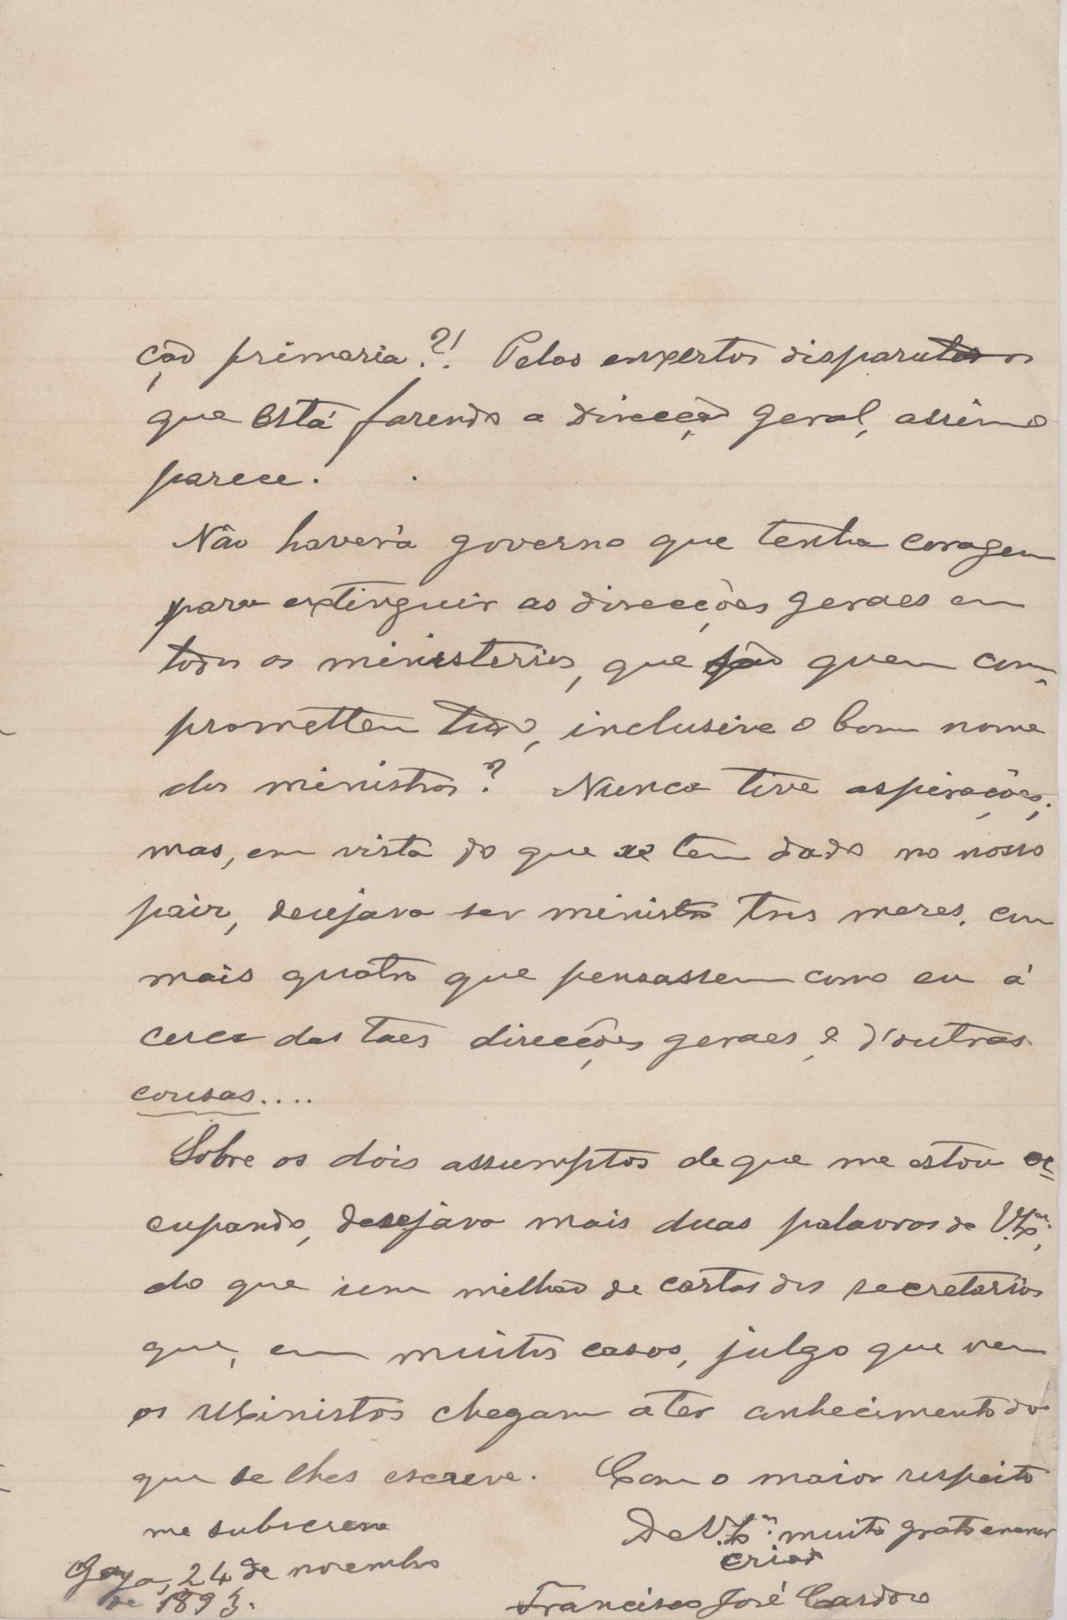 ção primaria?! Pelos expertos disparates
que está fazendo a Direcção geral, assim o
parece.
Não haverá governo que tenha coragem
para extinguir as direcções geraes em
todos os ministerios, que são quem com-
promettem tudo, inclusive o bom nome
dos ministros? Nunca tive aspirações;
mas, em vista do que se tem dado no nosso
paiz, desejava ser ministro tres mezes, com
mais quatro que pensassem como eu á
cerca das taes direcções geraes, e d'outras
cousas....
Sobre os dois assumptos de que me estou oc
cupando, desejava mais duas palavras de V. Exª.,
do que um milhão de cartas dos secretarios
que, em muitos casos, julgo que nem
os Ministros chegam a ter conhecimento do
que se lhes escreve. Com o maior respeito
me subscrevo
De V. Exª. muito grato e menor
criado
Gaya, 24 de novembro
de 1893.
Francisco José Cardoso